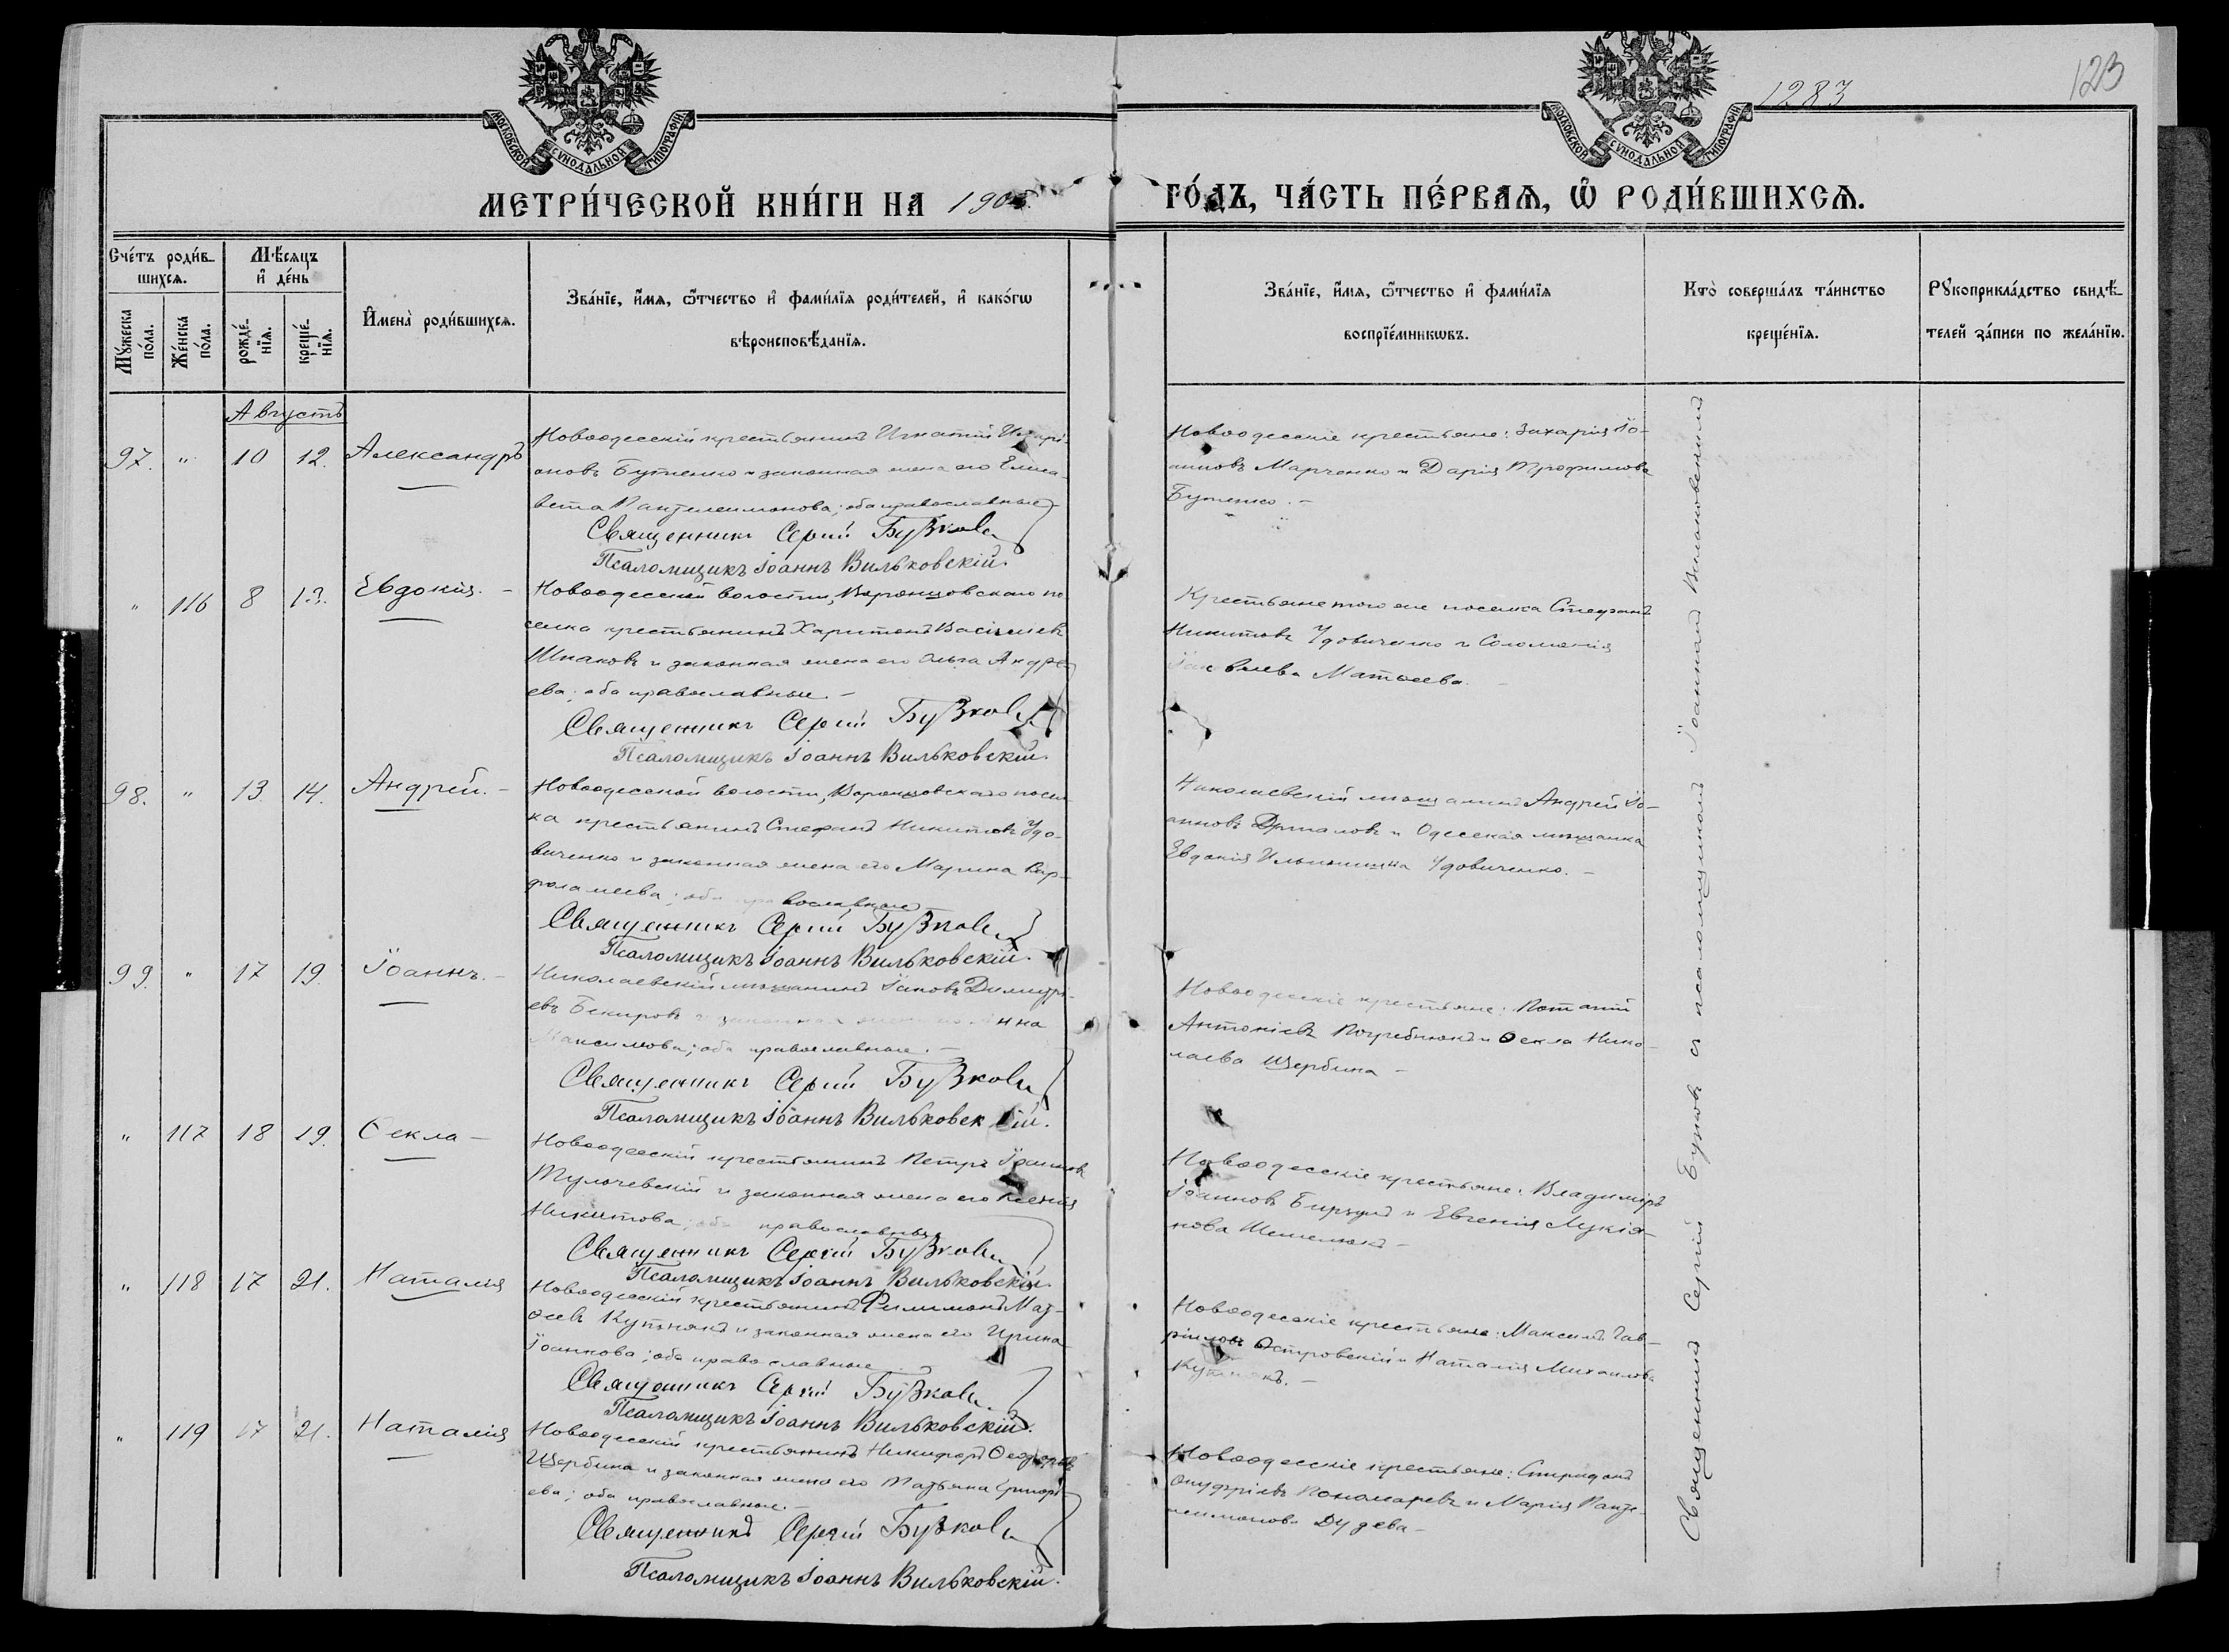 1283
123
МОСКОВСКОЙ СѴНОДАЛЬНОЙ ТИПОГРАФІИ
МОСКОВСКОЙ СѴНОДАЛЬНОЙ ТИПОГРАФІИ
МЕТРИ́ЧЕСКОЙ КНИ́ГИ НА 1905
ГО́ДЪ, ЧА́СТЬ ПЕ́РВАѦ, Ѽ РОДИ́ВШИХСѦ.
Сче́тъ роди́в-
шихсѧ.
Мꙋ́жеска
по́ла.
Же́нска
по́ла.
Мѣ́сѧцъ
и҆ де́нь
рожде́-
нїѧ.
креще́-
нїѧ.
И҆мена̀ роди́вшихсѧ.
Зва́нїе, и҆́мѧ, ѻ҆́тчество и҆ фами́лїѧ роди́телей, и҆ како́гѡ
вѣроисповѣ́данїѧ.
Зва́нїе, и҆́мѧ, ѻ҆́тчество и҆ фами́лїѧ
воспрїе́мникѡвъ.
Кто̀ соверша́лъ та́инство
креще́нїѧ.
Рꙋкоприкла́дство свидѣ́-
телей за́писи по жела́нїю.
Августъ
97. " 10 12. Александръ
Новоодесскій крестьянинъ Игнатій
оновъ Бутенко и законная жена его Елиса-
вета Пантелеимонова; оба православные
Священникъ Сергій Бузковъ
Псаломщикъ Іоаннъ Вильковскій.
Новоодесскіе крестьяне: Захарія Іо-
анновъ Марченко и Дарія Трофимова
Бутенко. -
" 116 8 13. Евдокія. -
Новоодесской волости, Воронцовскаго по-
селка крестьянинъ Харитонъ Васильевъ
Шпаковъ и законная жена его Ольга Андре-
ева; оба православные. -
Священникъ Сергій Бузковъ
Псаломщикъ Іоаннъ Вильковскій.
Крестьяне того же поселка Стефанъ
Никитовъ Удовиченко и Соломонія
Іаковлева Матвеева.
98. " 13 14. Андрей. -
Новоодесской волости, Воронцовскаго посел-
ка крестьянинъ Стефанъ Никитовъ Удо-
виченко и законная жена его Марина Вар-
фоламеева; оба православные
Священникъ Сергій Бузковъ
Псаломщикъ Іоаннъ Вильковскій.
Николаевскій мѣщанинъ Андрей Іо-
анновъ и Одесская мѣщанка
Евдокія Удовиченко. -
99. " 17 19. Іоаннъ. -
Николаевскій мѣщанинъ Іаковъ Димитрі-
евъ Бекировъ и законная жена его Анна
Максимова; оба православные. -
Священникъ Сергій Бузковъ
Псаломщикъ Іоаннъ Вильковскій.
Новоодесскіе крестьяне: Потапій
Антоніевъ и Ѳекла Нико-
лаева Щербина -
" 117 18 19. Ѳекла -
Новоодесскій крестьянинъ Петръ Іоанновъ
и законная жена его Ксенія
Никитова; оба православные
Священникъ Сергій Бузковъ
Псаломщикъ Іоаннъ Вильковскій.
Новоодесскіе крестьяне: Владиміръ
Іоанновъ и Евгенія Лукія-
нова
" 118 17 21. Наталія
Новоодесскій крестьянинъ Филимонъ Мат-
ѳеевъ Кутнякъ и законная жена его Ирина
Іоаннова; оба православные. -
Священникъ Сергій Бузковъ
Псаломщикъ Іоаннъ Вильковскій.
Новоодесскіе крестьяне: Максимъ Гав-
риловъ Островскій и Наталія Михаилова
Кутнякъ. -
" 119 17 21. Наталія
Новоодесскій крестьянинъ Никифоръ Ѳеодоровъ
Щербина и законная жена его Татьяна Григорі-
ева; оба православные. -
Священникъ Сергій Бузковъ
Псаломщикъ Іоаннъ Вильковскій.
Новоодесскіе крестьяне: Спиридонъ
Онуфріевъ Пономаревъ и Марія Панте-
леимонова Дудева -
Священникъ Сергій Бузковъ съ псаломщикомъ Іоанномъ Вильковскимъ